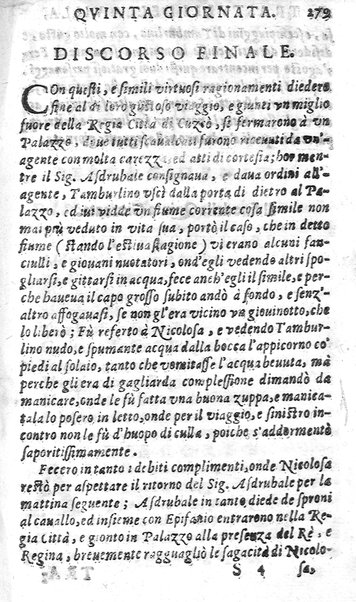 QVINTA GIORNATA. 279
DISCORSO FINALE.
COn questi, e simili virtuosi ragionamenti diedero
fine al di loro gustoso viaggio, e giunti vn miglio
fuore della Regia Città di Cuzco, si fermarono à vn
Palazzo, doue tutti scaualcati furono riceuuti da vn'
agente con molta carezza, ed atti di cortesia; hor men
tre il Sig. Asdrubale consignaua, e daua ordini all'
agente, Tamburlino vscì dalla porta di dietro al Pa-
lazzo, ed iui vidde vn fiume corrente cosa simile non
mai più veduto in vita sua, portò il caso, che in detto
fiume (stando l'estiua stagione) vi erano alcuni fan-
ciulli, e giouani nuotatori, ond'egli vedendo altri spo-
gliarsi, e gittarsi in acqua, fece anch'egli il simile, e per-
che haueua il capo grosso subito andò à fondo, e senz'
altro affogauasi, se non gl'era vicino vn giouinotto, che
lo liberò; Fù referto à Nicolosa, e vedendo Tambur-
lino nudo, e spumante acqua dalla bocca l'appicorno co'
piedi al solaio, tanto che vomitasse l'acqua beuuta, mà
perche gli era di gagliarda complessione dimandò da
manicare, onde le fù fatta vna buona zuppa, e manica-
tala lo posero in letto, onde per il viaggio, e sinistro in-
contro non le fù d'huopo di culla, poiche s'addormentò
saporitissimamente.
Fecero in tanto i debiti complimenti, onde Nicolosa
restò per aspettare il ritorno del Sig. Asdrubale per la
mattina seguente; Asdrubale in tanto diede de sproni
al cauallo, ed insieme con Epifanio entrarono nella Re-
gia Città, e gionto in Palazzo alla presenza del Rè, e
Regina, breuemente ragguagliò le sagacità di Nicolo-
S 4 sa,